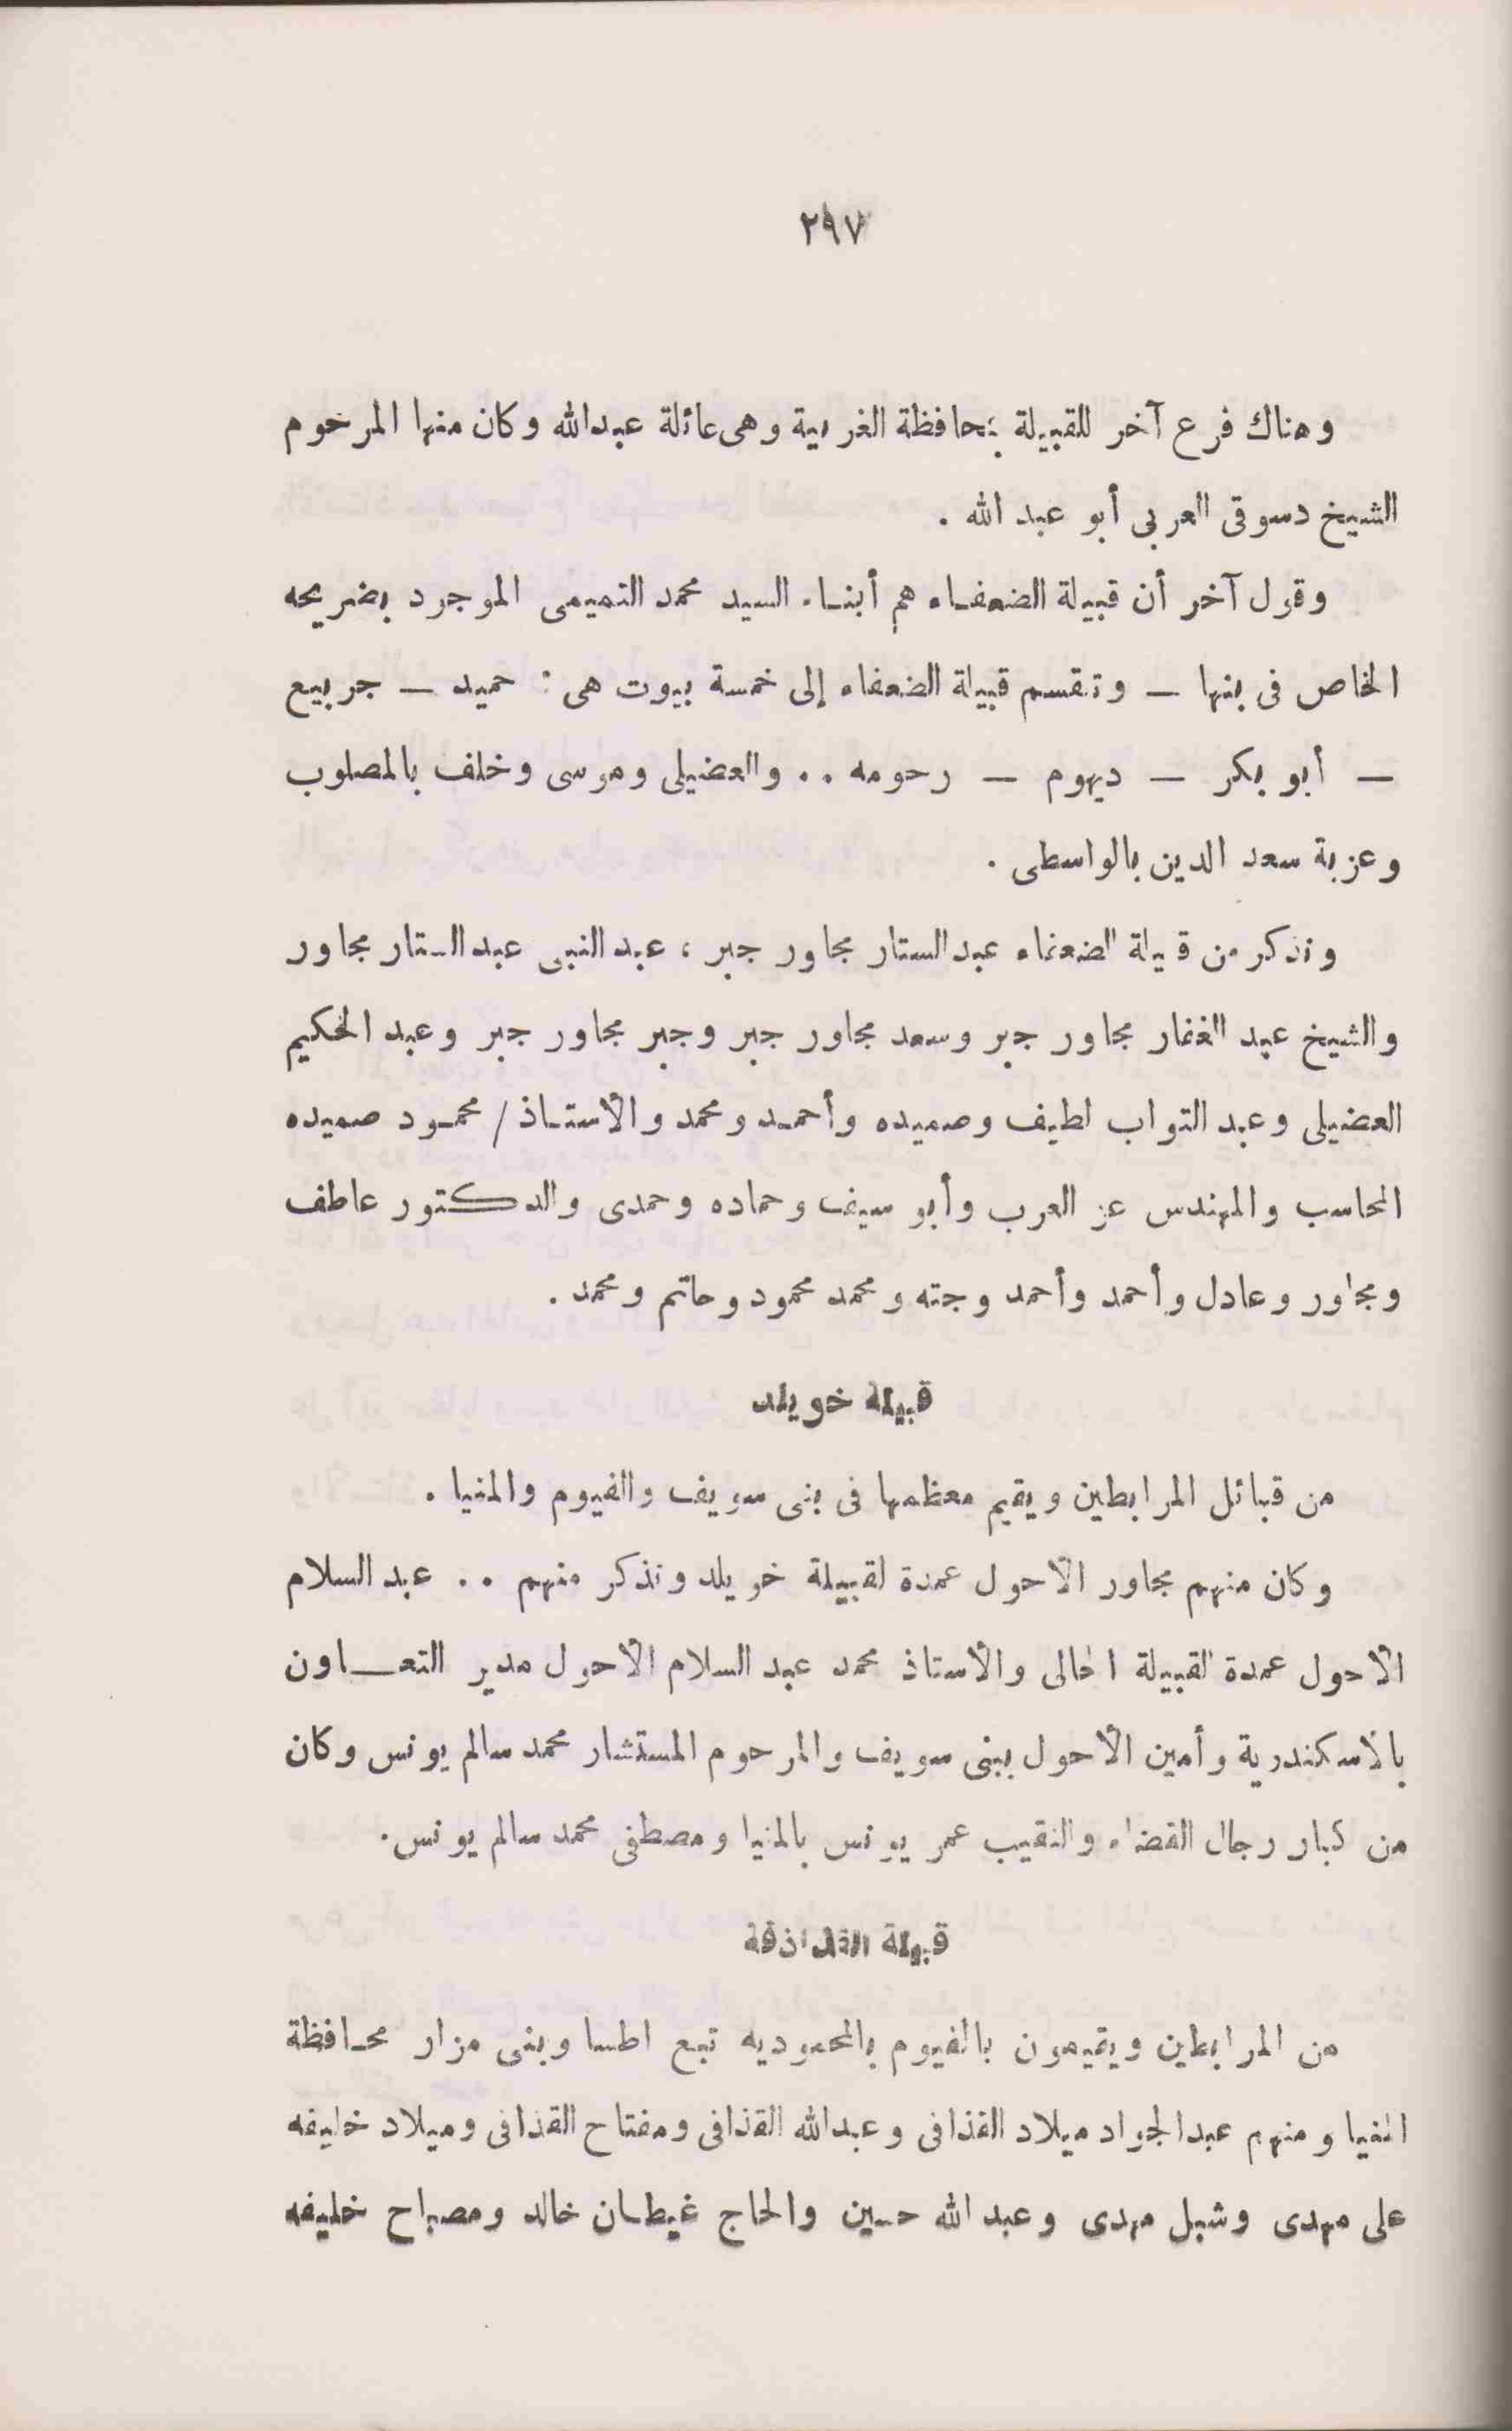 ٢٩٧
وهناك فرع آخر للقبيلة بمحافظة الغربية وهى عائلة عبدالله وكان منها المرحوم
الشيخ دسوقى العربى أبو عبد الله .
وقول آخر أن قبيلة الضعفاء هم أبناء السيد محمد التميمى الموجود بضريحه
الخاص فى بنها — وتقسم قبيلة الضعفاء إلى خمسة بيوت هى : حميد — جربيع
— أبو بكر — ديهوم — رحومه . . والعضيلى وموسى وخلف بالمصلوب
وعزبة سعد الدين بالواسطى .
ونذكر من قبيلة الضعفاء عبد الستار مجاور جبر ، عبد النبى عبد الستار مجاور
والشيخ عبد الغفار مجاور جبر وسعد مجاور جبر وجبر مجاور جبر وعبد الحكيم
العضيلى وعبد التواب لطيف وصميده وأحمد ومحمد والأستاذ / محمود صميده
المحاسب والمهندس عز العرب وأبو سيف وحماده وحمدى والدكتور عاطف
ومجاور وعادل وأحمد وأحمد وجته ومحمد محمود وحاتم ومحمد .
قبيلة خويلد
من قبائل المرابطين ويقيم معظمها فى بنى سويف والفيوم والمنيا .
وكان منهم مجاور الأحول عمدة لقبيلة خويلد ونذكر منهم . . عبد السلام
الأحول عمدة القبيلة الحالى والأستاذ محمد عبد السلام الأحول مدير التعاون
بالاسكندرية وأمين الأحول ببنى سويف والمرحوم المستشار محمد سالم يونس وكان
من كبار رجال القضاء والنقيب عمر يونس بالمنيا ومصطفى محمد سالم يونس .
قبيلة القذاذفة
من المرابطين ويقيمون بالفيوم بالمحموديه تبع اطسا وبنى مزار محافظة
المنيا ومنهم عبدالجواد ميلاد القذافى وعبدالله القذافى ومفتاح القذافى وميلاد خليفه
على مهدى وشبل مهدى وعبد الله حسين والحاج غيطان خالد ومصباح خليفه